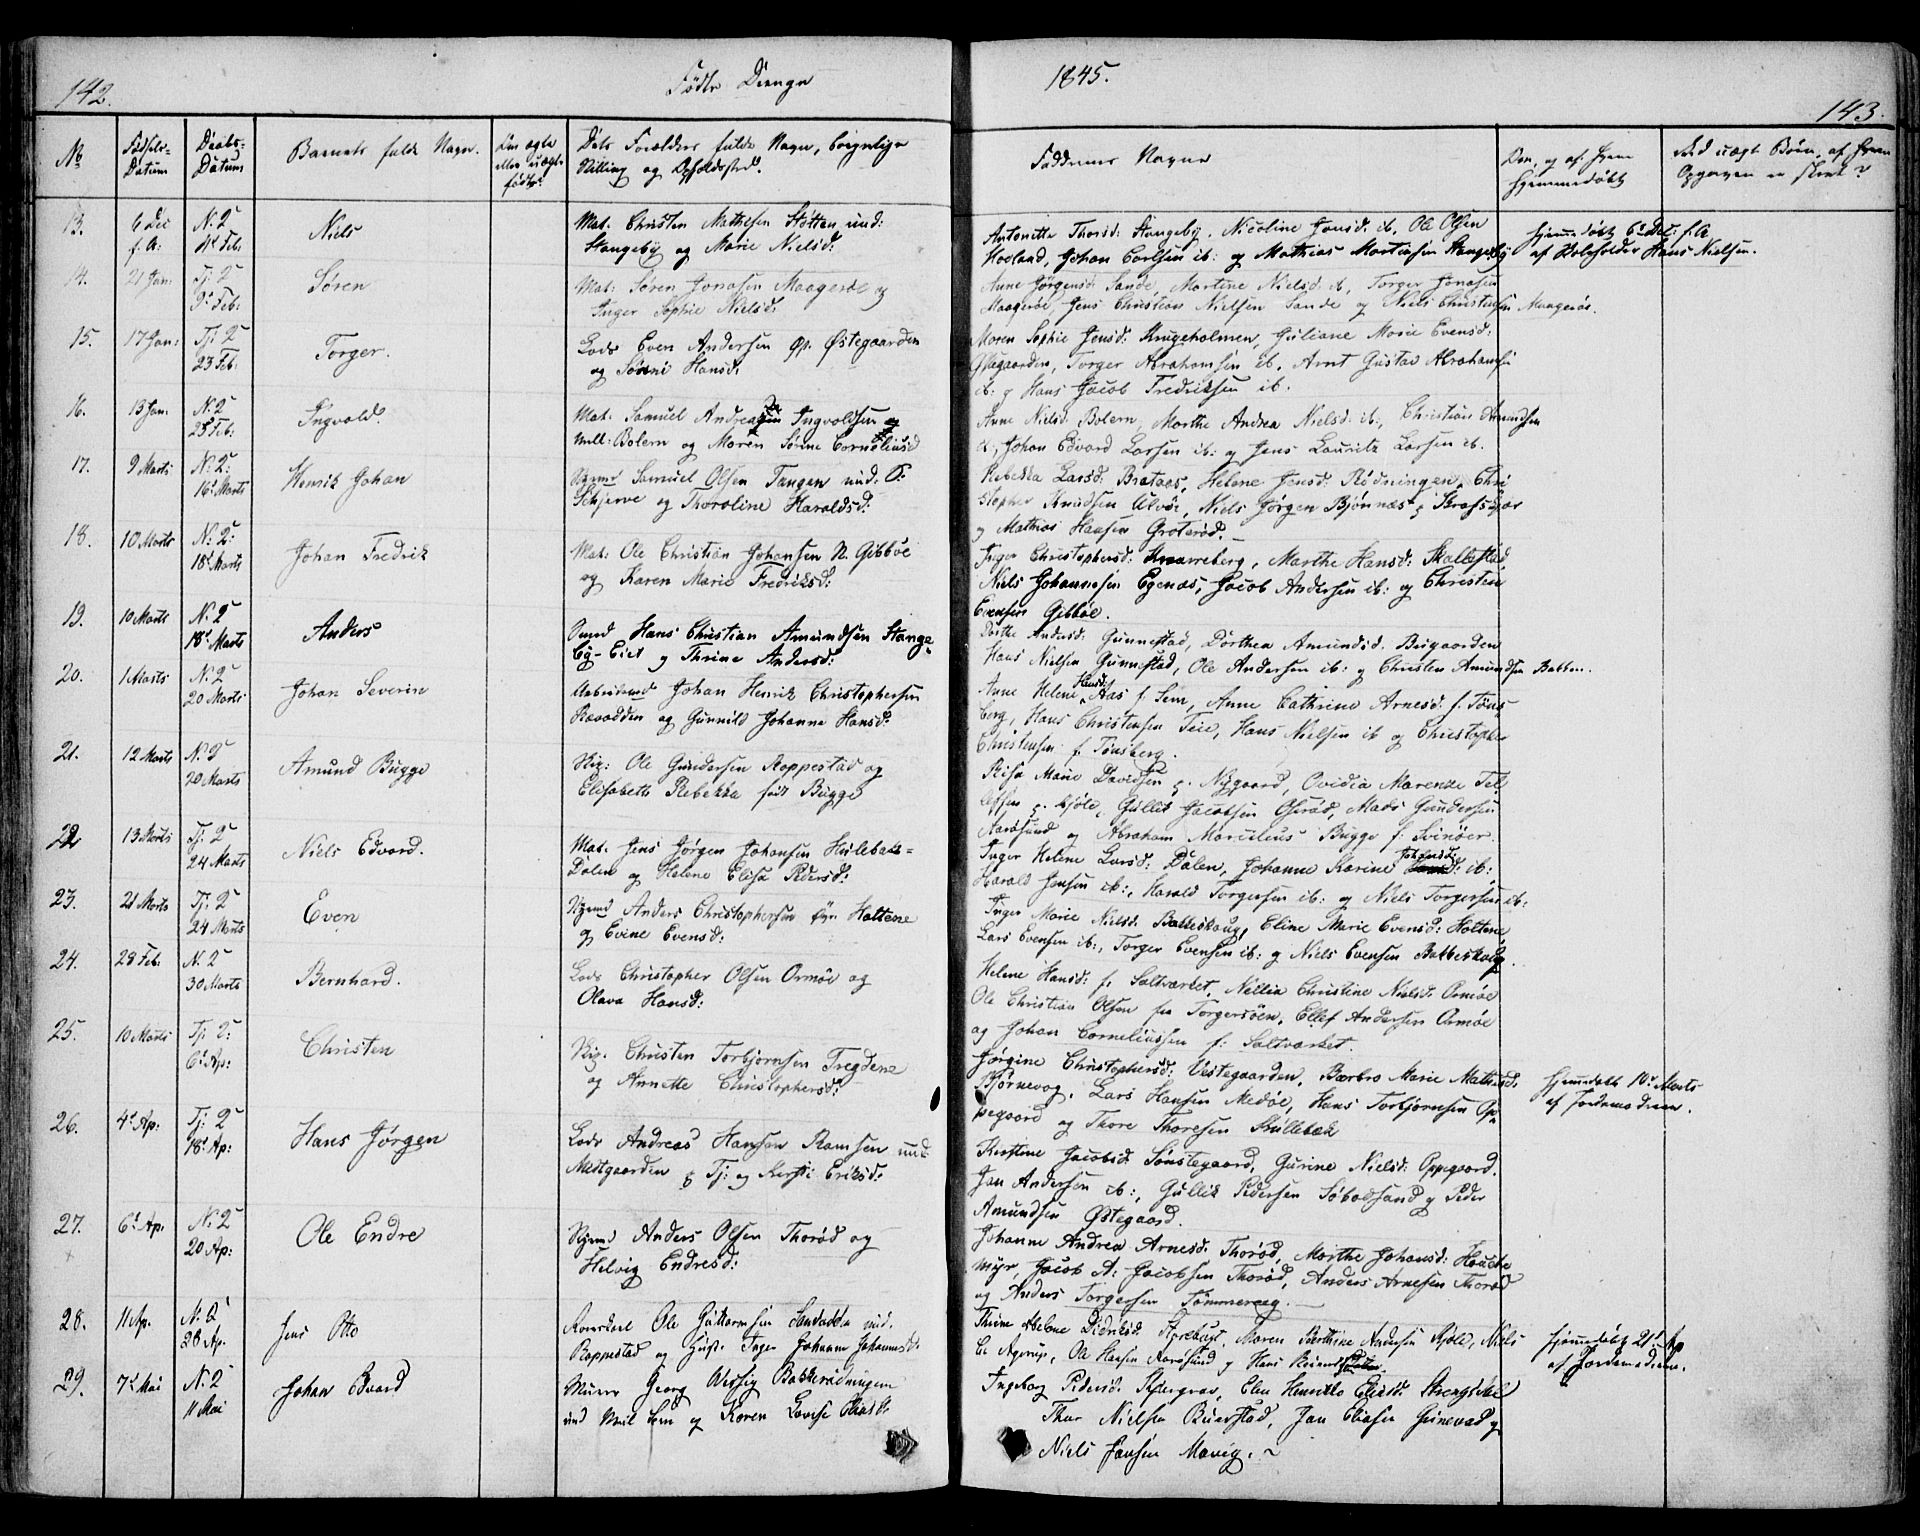 142.
Fødte Drenge
1845.
143.
No
Fødsels-
Datum
Daabs-
Datum
Barnets fulde Navn.
Om ægte
eller uægte
født?
Dets Forældres fulde Navn, borgerlige
Stilling og Opholdssted.
Faddernes Navne
Om, og af hvem
hjemmedøbt
Ved uægte Børn, af hvem
Opgaven er skeet?
13.
6 Dec
f. A:
N. 2
Niels
Mat. Christen Mathisen Støtten und:
Stangeby og Marie Nielsd:
Antonette Thorsd: Stangeby. Nicoline Jensd. ib. Ole Olsen
Hovland, Johan Carlsen ib: og Mathias Mortensen Stangeby
hjemmedøbt 6t Dec: f. A
af Huseholder Hans Nielsen.
14.
21 Jan:
Tj: 2
9d Feb:
Søren
Mat: Søren Jonasen Maagerøe og
Inger Sophie Nielsd:
Anne Jørgensd: Sande, Martine Nielsd ib, Torger Jonasen
Maagerøe, Jens Christian Nielsen Sande og Niels Christensen Maagerøe
15.
17 Jan:
Tj: 2
23 Feb:
Torger.
Lods Even Andersen Østegaarden
og Sønni Hansd:
Maren Sophie Jensd: Krugeholmen, Juliane Marie Evensd:
Østegaarden, Torger Abrahamsen ib. Arnt Gustav Abrahamsen
ib: g Hans Jacob Fredriksen ib.
16.
13 Jan:
N. 2
23 Feb:
Ingvald.
Mat. Samuel Andreas Ingvoldsen
Mell: Bolern og Maren Sønne Corneliusd
Anne Nielsd. Bolern, Marthe Andrea Nielsd ib:, Christian Amundsen
ib, Johan Edvard Larsen ib: og Jens Lauritz Larsen ib.
17.
9 Marts
N: 2:
16d Marts
Henrik Johan
Samuel Olsen Tangen und: P:
Skjerve og Thoroline Haraldsd:
Rebekka Larsd: Brataas, Helene Jensd: Rødningen, Chri
stopher Knudsen Ulvøe, Niels Jørgen Bjønnæs
og Mathias Hansen Groterød.
18.
10 Marts
N: 2:
18d Marts
Johan Fredrik
Mat: Ole Christian Johansen N. Gibbøe
og Karen Marie Fredriksd:
Inger Christophersd: Knarreberg, Marthe Hansd: Skallestad,
Niels Johannesen Egenæs, Jacob Andersen ib: og Christen
Evensen Gibbøe.
19.
10 Marts
N: 2
18d Marts
Anders
Hans Christian Amundsen Stange
by-Eiet og Thrine Andersd:
Dorthe Andersd: Gunnestad, Dorthea Amundsd. Buegaarden
Hans Nielsen Gunnestad, Ole Andersen ib: og Christen Amundsen Bakken.
20.
1 Marts
N: 2
20 Marts
Johan Severin
Arbeidsmd Johan Henrik Christophersen
Rævødden og Gunnild Johanne Hansd:
Anne Helene Hansd: Aas f. Sem, Anne Cathrine Arnesd. f. Tøns
berg, Hans Christensen Teie, Hans Nielsen ib og Christopher
Christensen f. Tønsberg.
21.
12 Marts
N. 2
20 Marts
Amund Bugge
Skip: Ole Gundersen Roppestad og
Elisabeth Rebekka født Bugge
Risa Marie Davidsen g. Nygaard, Ovidia Marenze Tel
lefsen g. Kjøle, Gullik Jacobsen Oserød, Mads Gundersen
Aarøsund og Abraham Marcelius Bugge f. Svinøer.
22
13 Marts
Tj: 2
24 Marts
Niels Edvard.
Mat. Jens Jørgen Johansen Hulebak-
Dalen og Helene Elisa Pedersd:
Inger Helene Larsd: Dalen, Johanne Karine Johansd: ib:
Harald Jensen ib:, Harald Torgersen ib: og Niels Torgersen ib:
23.
21 Marts
Tj: 2
24 Marts
Even
Anders Christophersen Holtene
og Evine Evensd:
Inger Marie Nielsd. Bakkeskaug, Eline Marie Evensd: Holtene
Lars Evensen ib:, Torger Evensen ib: og Niels Evensen Bakkeskaug.
24.
28 Feb:
N: 2
30 Marts
Bernhard.
Lods Christopher Olsen Ormøe og
Olava Hansd:
Helene Hansd: f. Saltværket, Nellia Christine Nielsd: Ormøe
Ole Christian Olsen fra Torgersøen, Ellef Andersen Ormøe
og Johan Corneliussen f: Saltværket.
25.
10 Marts
Tj: 2:
6d Ap:
Christen
Skip: Christen Torbjørnsen Tregdene
og Annette Christophersd:
Jørgine Christophersd: Vestegaarden, Barbro Marie Mathisd:
Bjørnevog, Lars Hansen Medøe, Hans Torbjørnsen Op-
pegaard og Thore Thoresen Skillebæk
hjemmedøbt 10d Marts
af Jordemoderen.
26.
4d Ap:
Tj: 2
18d Ap:
Hans Jørgen
Lods Andreas Hansen Ramsen und
Medtgaarden g Tj: og Kersti Eriksd:
Kirstine Jacobsd Sønstegaard, Gurine Nielsd: Oppegaard.
Jan Andersen ib:, Gullik Pedersen Søbodsand og Peder
Amundsen Østegaard.
27.
6d Ap:
N: 2
20 Ap:
Ole Endre
Anders Olsen Thorød og
Helvig Endresd:
Johanne Andrea Arnesd: Thorød, Marthe Johansd: Houche
myr, Jacob A: Jacobsen Thorød, Anders Arnesen Thorød
og Anders Torgersen Tømmervig.
28.
11 Ap.
N: 2
28 Ap.
Jens Otto
Ole Guttormsen Sandødden und.
Roppestad og Hust. Inger Johanne Johannesd.
Thrine Helene Didriksd: Maren Berthine Andersen Kjøle, Niels
Agerup, Ole Hansen Aarøsund g Hans
hjemmedøbt 21d Ap
af Jordemoderen.
29.
7d Mai
N: 2
11 Mai
Johan Edvard
Murer Georg Wessig Bakkerødningen
und Miil Sem og Karen Lovise Eliasd:
Ingeborg Pedersd: Elen Henrikke Eliasd:
Thor Nielsen Buerstad, Jan Eliasen Grinevad g
Niels Jansen Mavig.